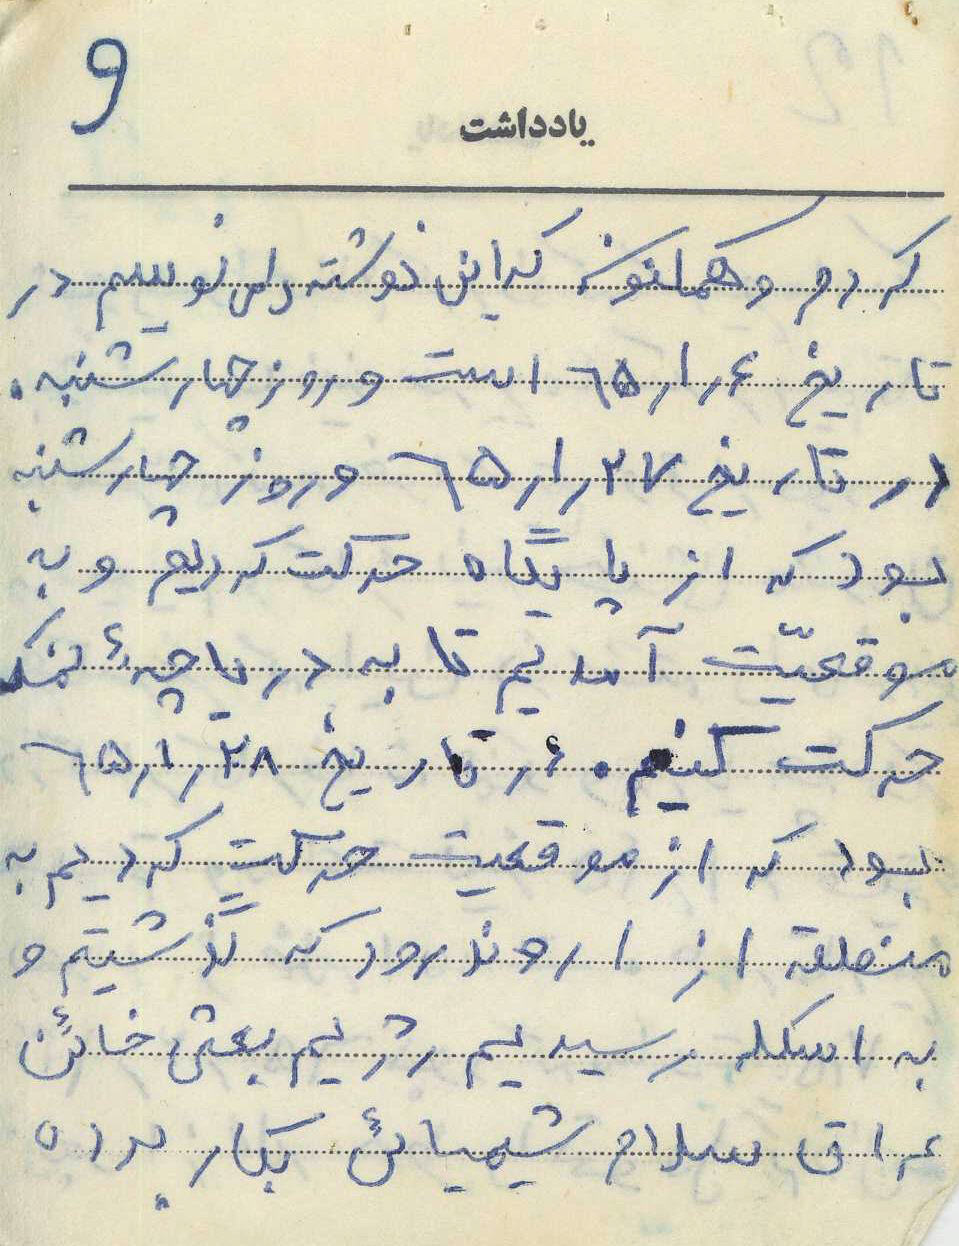 9
یادداشت
کردم و همانگونه که این نوشته را می نویسم در
تاریخ ۶ر۱ر۶۵ است و روز چهارشنبه.
در تاریخ ۲۷ر۱ر۶۵ و روز چهارشنبه
بود که از پایگاه حرکت کردیم و به
موقعیّت آمدیم تا به دریاچهٔ نمک
حرکت کنیم. در تاریخ ۲۸ر۱ر۶۵
بود که از موقعیت حرکت کردیم به
منطقه از اروندرود که گذشتیم و
به اسکله رسیدیم رژیم بعثی خائن
عراق سلاح شیمیائی بکار برده